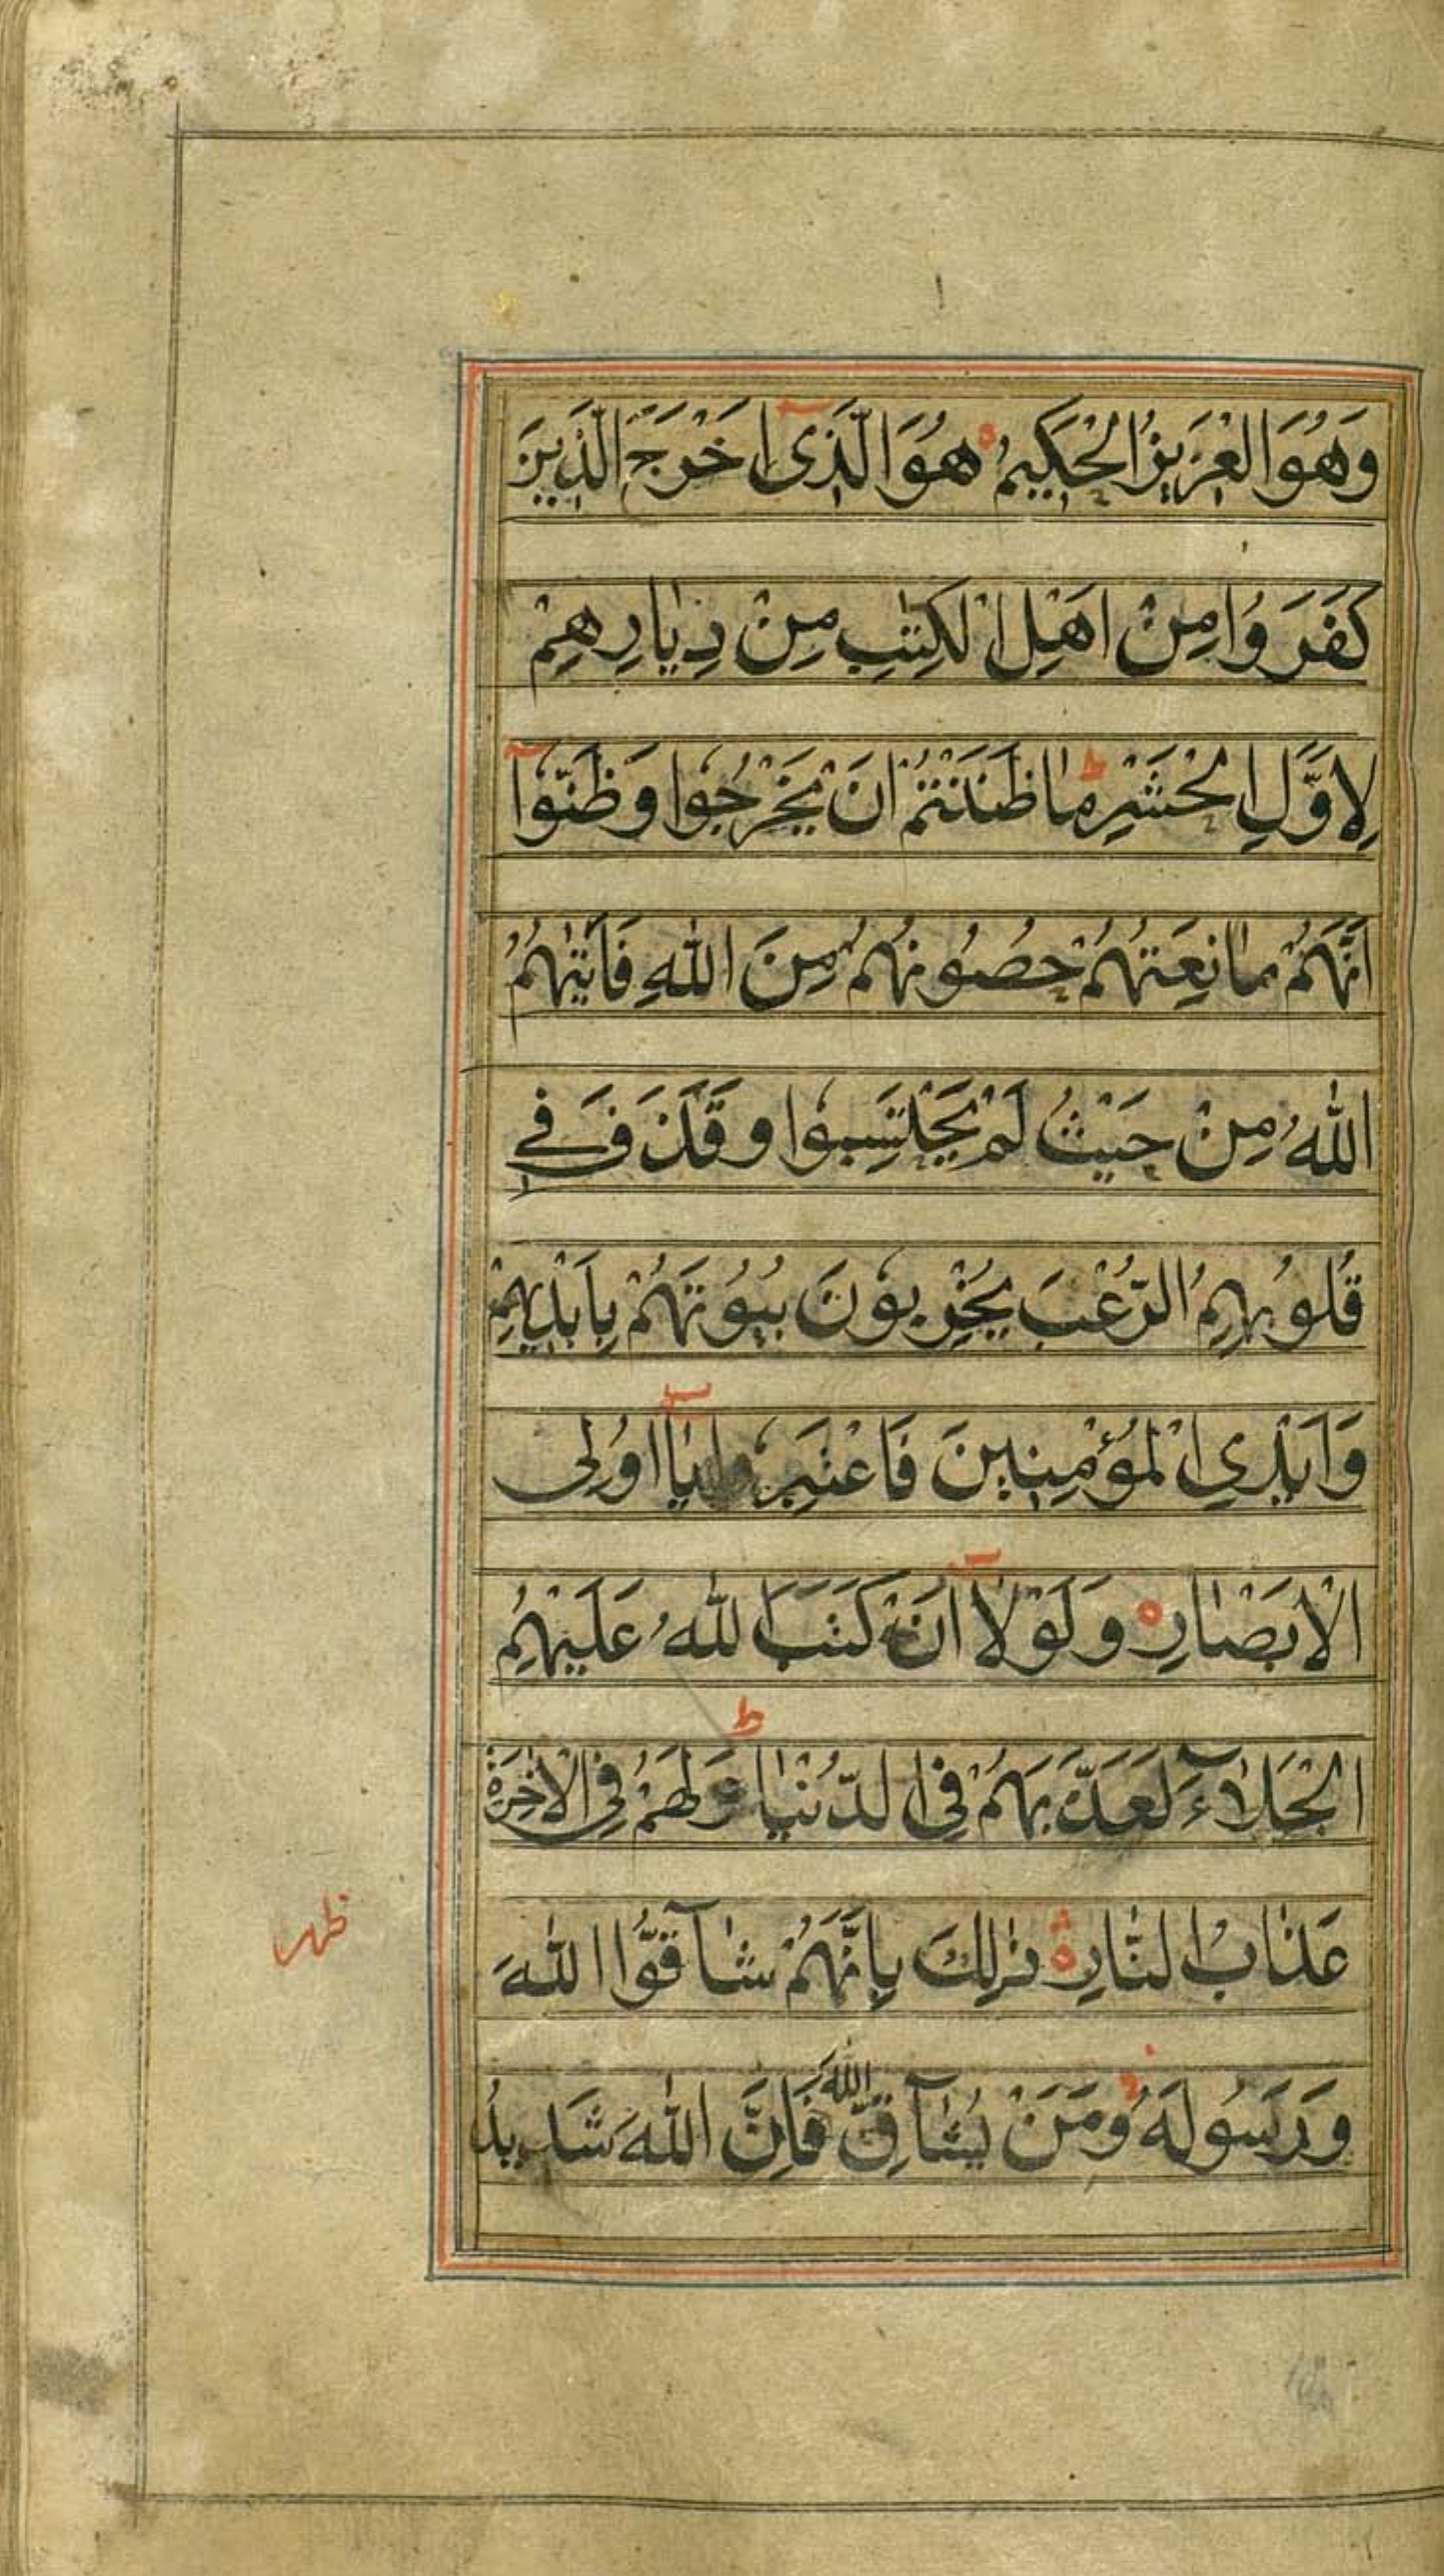 وَهُوَ الْعَزِيزُ الْحَكِيمُ ه هُوَ الَّذِىٓ اَخْرَجَ الَّذِينَ
كَفَرُوا مِنْ اَهْلِ الْكِتٰبِ مِنْ دِيَارِهِمْ
لِاَوَّلِ الْحَشْرِ ط مَا ظَنَنْتُمْ اَنْ يَخْرُجُوا وَظَنُّوٓا
اَنَّهُمْ مَانِعَتُهُمْ حُصُونُهُمْ مِنَ اللّٰهِ فَاَتٰهُمُ
اللّٰهُ مِنْ حَيْثُ لَمْ يَحْتَسِبُوا وَقَذَفَ فِى
قُلُوبِهِمُ الرُّعْبَ يُخْرِبُونَ بُيُوتَهُمْ بِاَيْدِيهِمْ
وَاَيْدِى الْمُؤْمِنِينَ فَاعْتَبِرُوا يٰٓا اُولِى
الْاَبْصَارِ ه وَلَوْلَآ اَنْ كَتَبَ اللّٰهُ عَلَيْهِمُ
الْجَلَآءَ لَعَذَّبَهُمْ فِى الدُّنْيَا ط وَلَهُمْ فِى الْاٰخِرَةِ
عَذَابُ النَّارِ ه ذٰلِكَ بِاَنَّهُمْ شَآقُّوا اللّٰهَ
ظهر
وَرَسُولَهُ وَمَنْ يُشَآقِّ اللّٰهَ فَاِنَّ اللّٰهَ شَدِيدُ